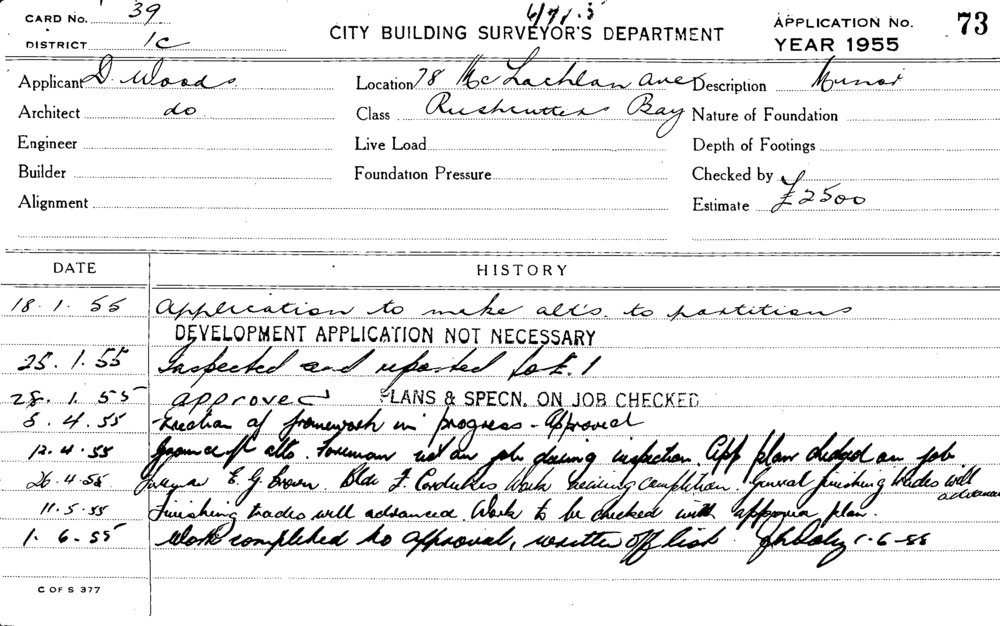 CARD No. 39
DISTRICT 1c
CITY BUILDING SURVEYOR'S DEPARTMENT
APPLICATION No. 73
YEAR 1955
Applicant D. Woods
Location 78 McLachlan Ave
Description Minor
Architect do
Class Rushcutters Bay
Nature of Foundation
Engineer
Live Load
Depth of Footings
Builder
Foundation Pressure
Checked by
Alignment
Estimate £2500
DATE HISTORY
18.1.55 Application to make alts. to partitions
DEVELOPMENT APPLICATION NOT NECESSARY
25.1.55 Inspected and reported to E.1
28.1.55 approved PLANS & SPECN. ON JOB CHECKED
5.4.55 Erection of framework in progress - Approved
12.4.55 alts. Foreman not on job during inspection. App plan checked on job
26.4.55 Foreman E. G. Brown. Bldr F. Work nearing completion. General finishing trades well advanced
11.5.55 Finishing trades well advanced. Work to be checked with plan.
1.6.55 Work completed to approval, written off list. 1-6-55
C OF S 377